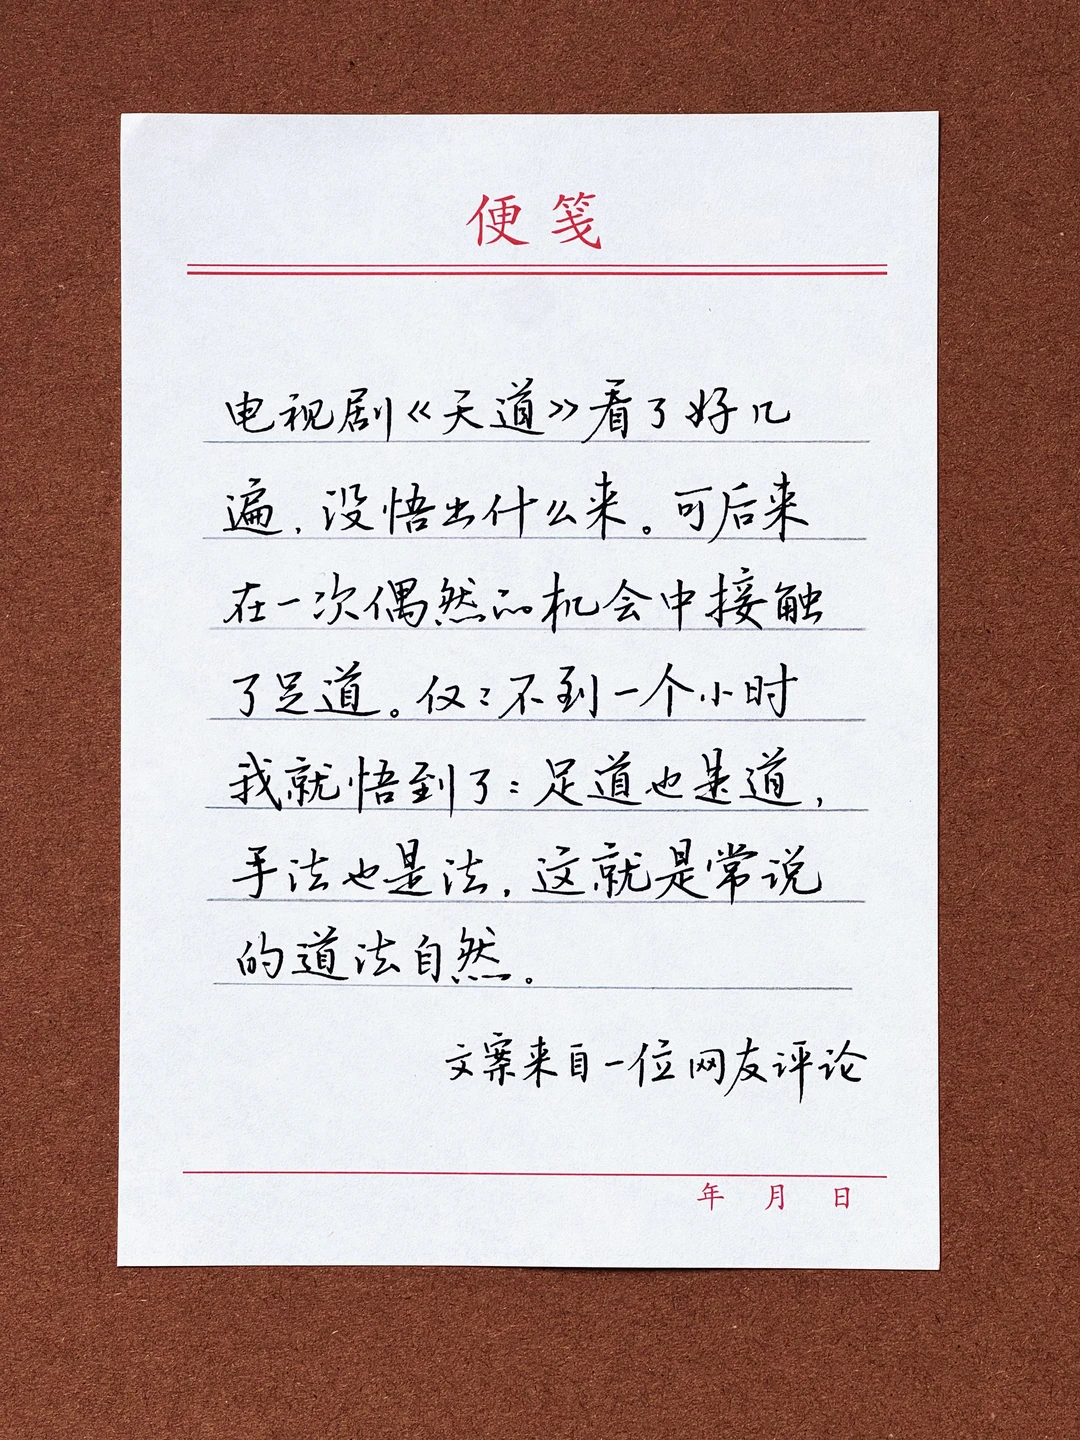 便笺
电视剧《天道》看了好几
遍，没悟出什么来。可后来
在一次偶然的机会中接触
了足道。仅仅不到一个小时
我就悟到了：足道也是道，
手法也是法，这就是常说
的道法自然。
文案来自一位网友评论
年 月 日